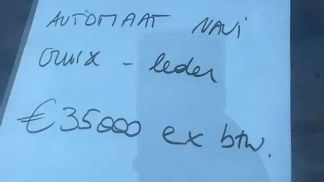 AUTOMAAT NAVI
- leder
€ 35000 ex btw.